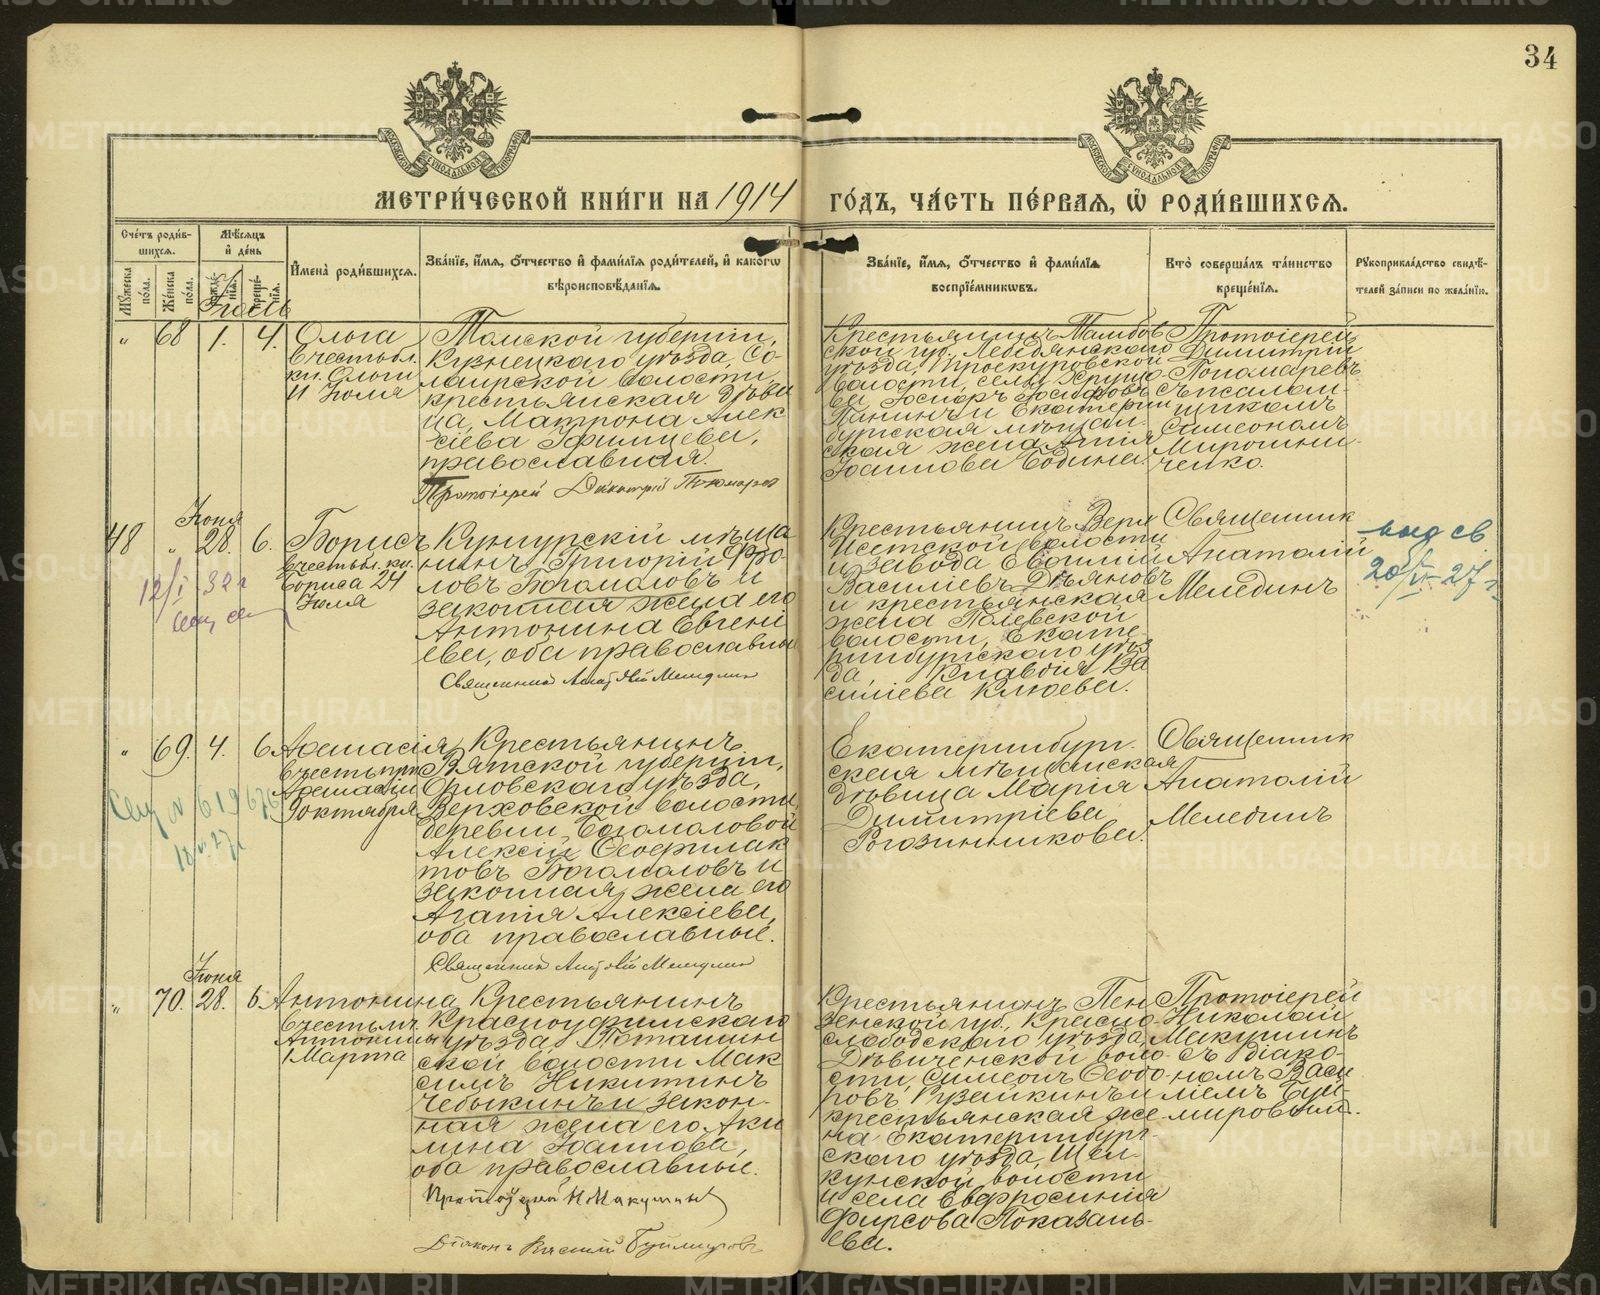 34
МЕТРИ́ЧЕСКОЙ КНИ́ГИ НА 1914 ГО́ДЪ, ЧА́СТЬ ПЕ́РВАЯ, Ѿ РОДИ́ВШИХСЯ.
Сче́тъ роди́в-
шихся.
Мѣ́сяцъ
и҆ де́нь
И҆мена̀ роди́вшихся.
Зва́нїе, и҆́мя, ѻ҆́тчество и҆ фами́лїя роди́телей, и҆ како́гѡ
вѣроисповѣ́данїя.
Зва́нїе, и҆́мя, ѻ҆́тчество и҆ фами́лїя
воспрїе́мникѡвъ.
Кто̀ соверша́лъ та́инство
креще́нїя.
Рꙋкоприкла́дство свидѣ́-
телей за́писи по жела́нїю.
Мꙋ́жеска
по́ла.
Же́нска
по́ла.
Июль
„ 68 1. 4. Ольга
въ честь бл.
кн. Ольги
11 Июля
Томской губернiи,
Кузнецкаго уѣзда, Со-
лаирской волости
крестьянская дѣви
ца, Матрона Алек
сiева Ефимцева,
православная.
Протоiерей Димитрiй Пономарев
Крестьянинъ Тамбов
ской губ. Лебедянскаго
уѣзда, Проскуровской
волости, села Хрущо-
ва Iосифъ Iосифовъ
Панинъ и Екатерин
бургская мѣщан-
ская жена Агнiя
Iоаннова Бодина.
Протоiерей
Димитрiй
Пономаревъ
съ псалом-
щикомъ
Симеономъ
Мирошни-
ченко.
48 „ Июня 28. 6. Борисъ
въ честь бл. кн.
Бориса 24
Июля
Кунгурскiй мѣща
нинъ Григорiй Фро-
ловъ Богомоловъ и
законная жена его
Антонина Евгенi
ева, оба православные
Священник Анатолiй Меледин
Крестьянинъ Верх
Исетской волости
и завода Евѳимiй
Василiевъ Демьяновъ
и крестьянская
жена Полевской
волости, Екате-
ринбургскаго уѣз
да, Клавдiя Ва
силiева Клюева.
Священник
Анатолiй
Меледин
выд св
20/VI-27 г.
12/I 32 г
69. 4. 6. Аѳанасiя
въ честь прп
Аѳанасiи
9 октября
Крестьянинъ
Вятской губернiи,
Орловскаго уѣзда,
Верховской волости,
деревни Богомоловой
Алексiй Ѳеофилак
товъ Богомоловъ и
законная жена его
Агапiя Алексiева,
оба православные.
Священник Анатолiй Меледин
Екатеринбург-
ская мѣщанская
дѣвица Марiя
Димитрiева
Рогозинникова.
Священник
Анатолiй
Меледин
„ 70. Июня 28. 6. Антонина
въ честь мч.
Антонины
1 Марта
Крестьянинъ
Красноуфимскаго
уѣзда Поташин
ской волости Мак
симъ Никитинъ
Чебыкинъ и закон-
ная жена его Аки
лина Iоаннова,
оба православные.
Протоiерей Н. Макушинъ
Дiаконъ Василiй Буймировъ
Крестьянинъ Пен
зенской губ., Красно-
слободскаго уѣзда,
Дѣвиченской воло-
сти, Симеонъ Ѳедо-
ровъ Кузейкинъ и
крестьянская же-
на Екатеринбург-
скаго уѣзда, Шел-
кунской волости
и села Евфросинiя
Фирсова Показань-
ева.
Протоiерей
Николай
Макушинъ
съ дiако-
номъ Васи
лiемъ Буй-
мировым.